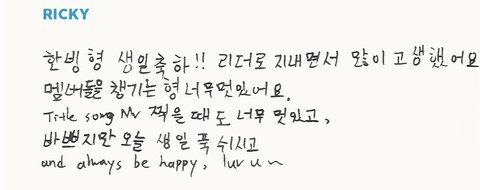 RICKY
한빈 형 생일축하!! 리더로 지내면서 많이 고생했어요
멤버들을 챙기는 형 너무멋있어요.
Title song MV 찍을 때도 너무 멋있고,
바쁘지만 오늘 생일 푹 쉬시고
and always be happy, luv u~